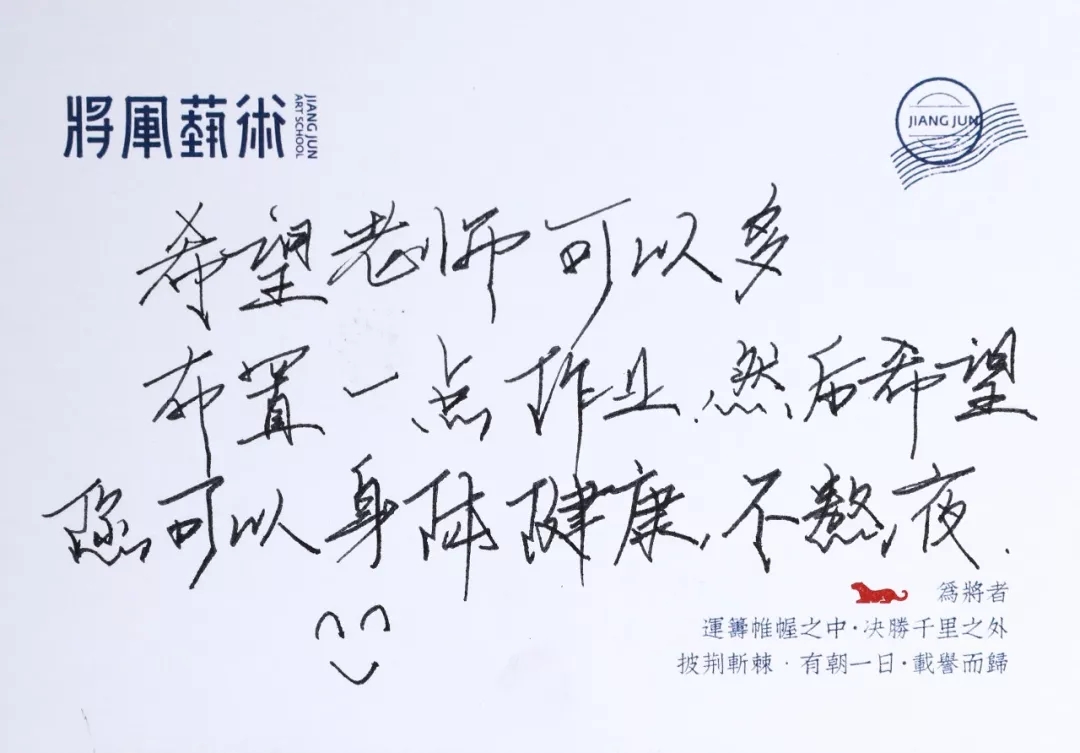 將軍藝術
JIANG JUN
ART SCHOOL
JIANG JUN
希望老师可以多
布置一点作业.然后希望
您可以身体健康,不熬夜.
爲將者
運籌帷幄之中·决勝千里之外
披荆斬棘·有朝一日·載譽而歸